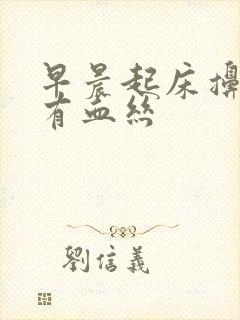 早晨起床擤
有血絲
劉信義